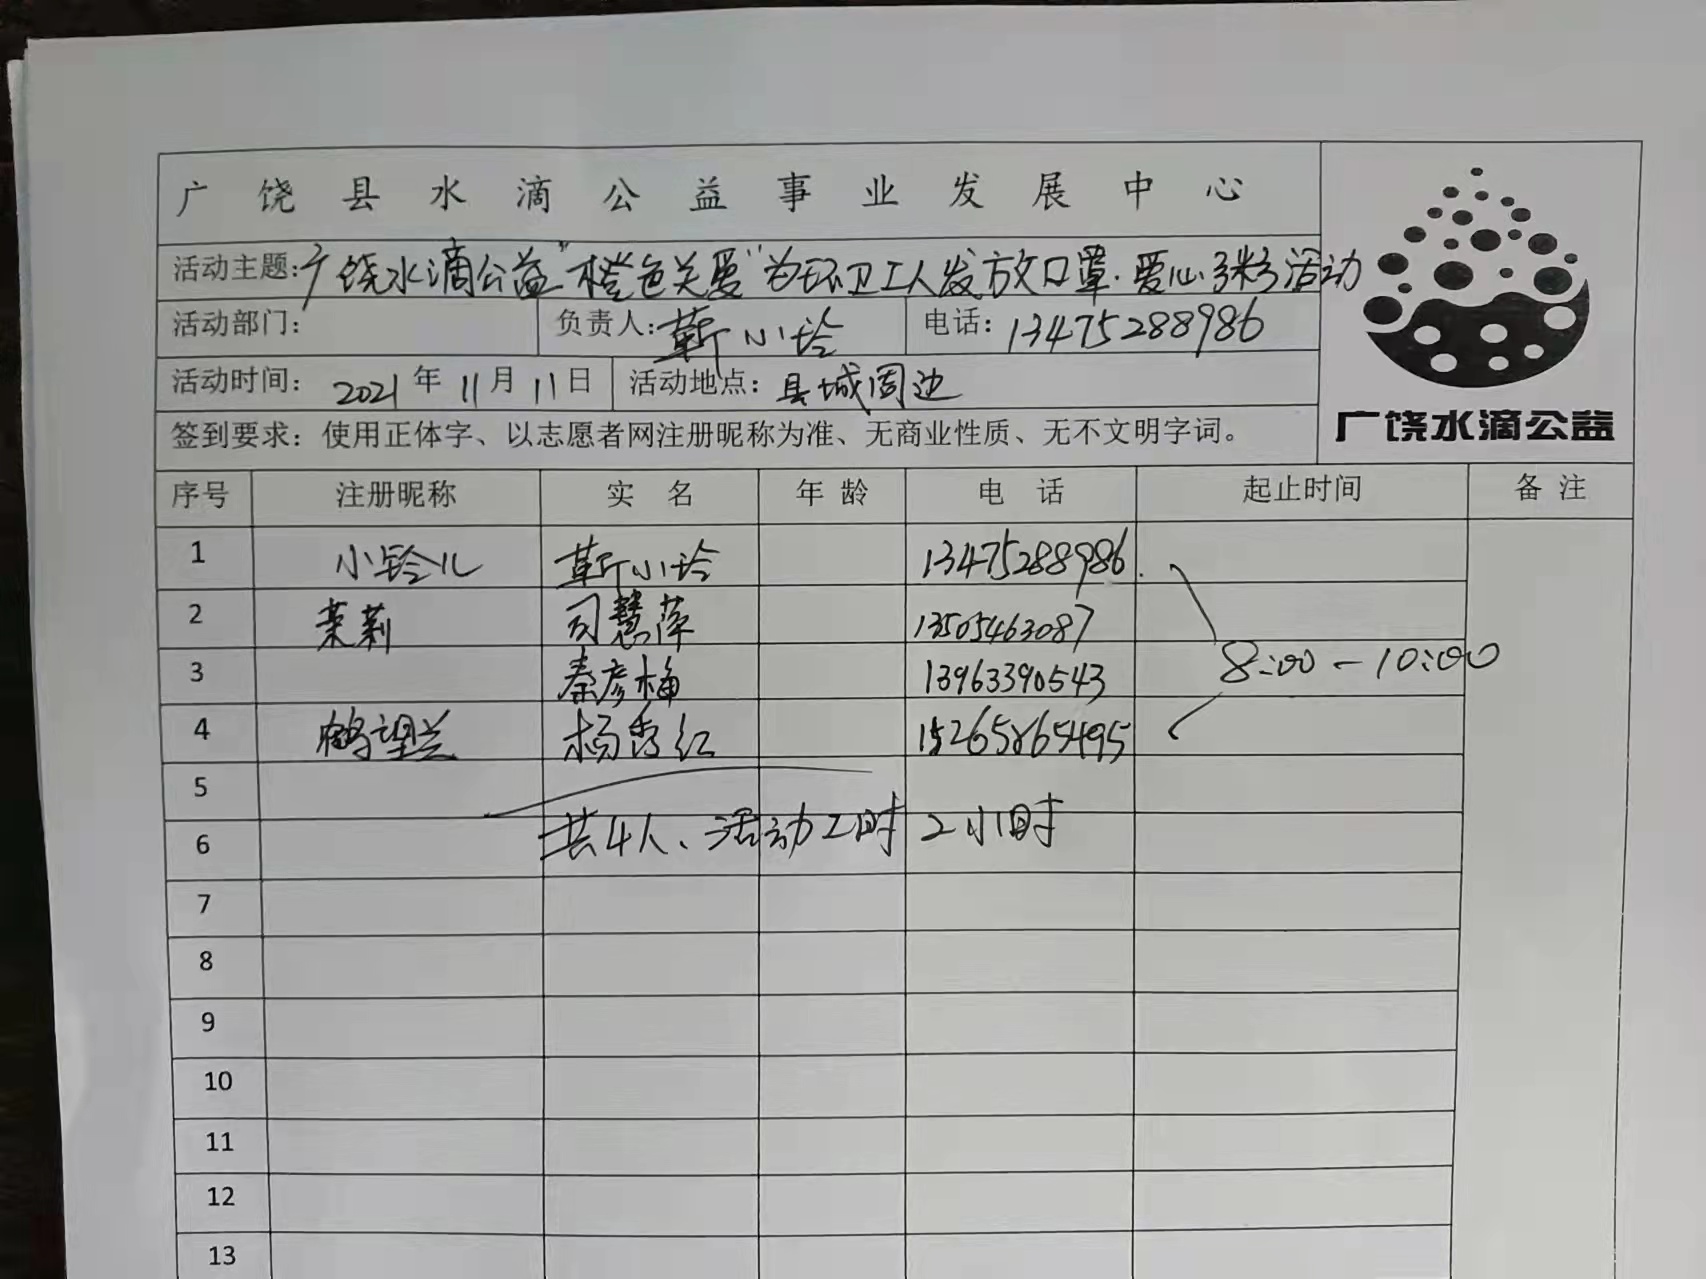 广饶县水滴公益事业发展中心
活动主题:广饶水滴公益"橙色关爱"为环卫工人发放口罩.爱心粥活动
活动部门: 负责人:靳小玲 电话:13475288986
活动时间: 2021年11月11日 活动地点:县城周边
签到要求:使用正体字、以志愿者网注册昵称为准、无商业性质、无不文明字词。
广饶水滴公益
序号 注册昵称 实名 年龄 电话 起止时间 备注
1 小铃儿 靳小玲 13475288986
2 茉莉 司慧萍 13505463087
8:00-10:00
3 秦彦梅 13963390543
4 鹤望兰 杨秀红 15265865495
5
6 共4人、活动工时2小时
7
8
9
10
11
12
13